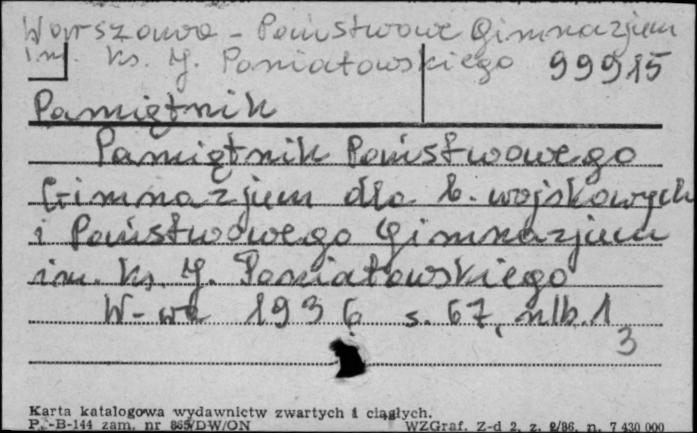 Warszawa - Państwowe Gimnazjum
im. Ks. J. Poniatowskiego 99915
Pamiętnik
Pamiętnik Państwowego
Gimnazjum dla b. wojskowych
i Państwowego Gimnazjum
im. Ks. J. Poniatowskiego
W-wa 1936 s. 67, nlb. 1
3
Karta katalogowa wydawnictw zwartych i ciągłych.
Pu-B-144 zam. nr 865/DW/ON WZGraf. Z-d 2, z. 2/86, n. 7 430 000